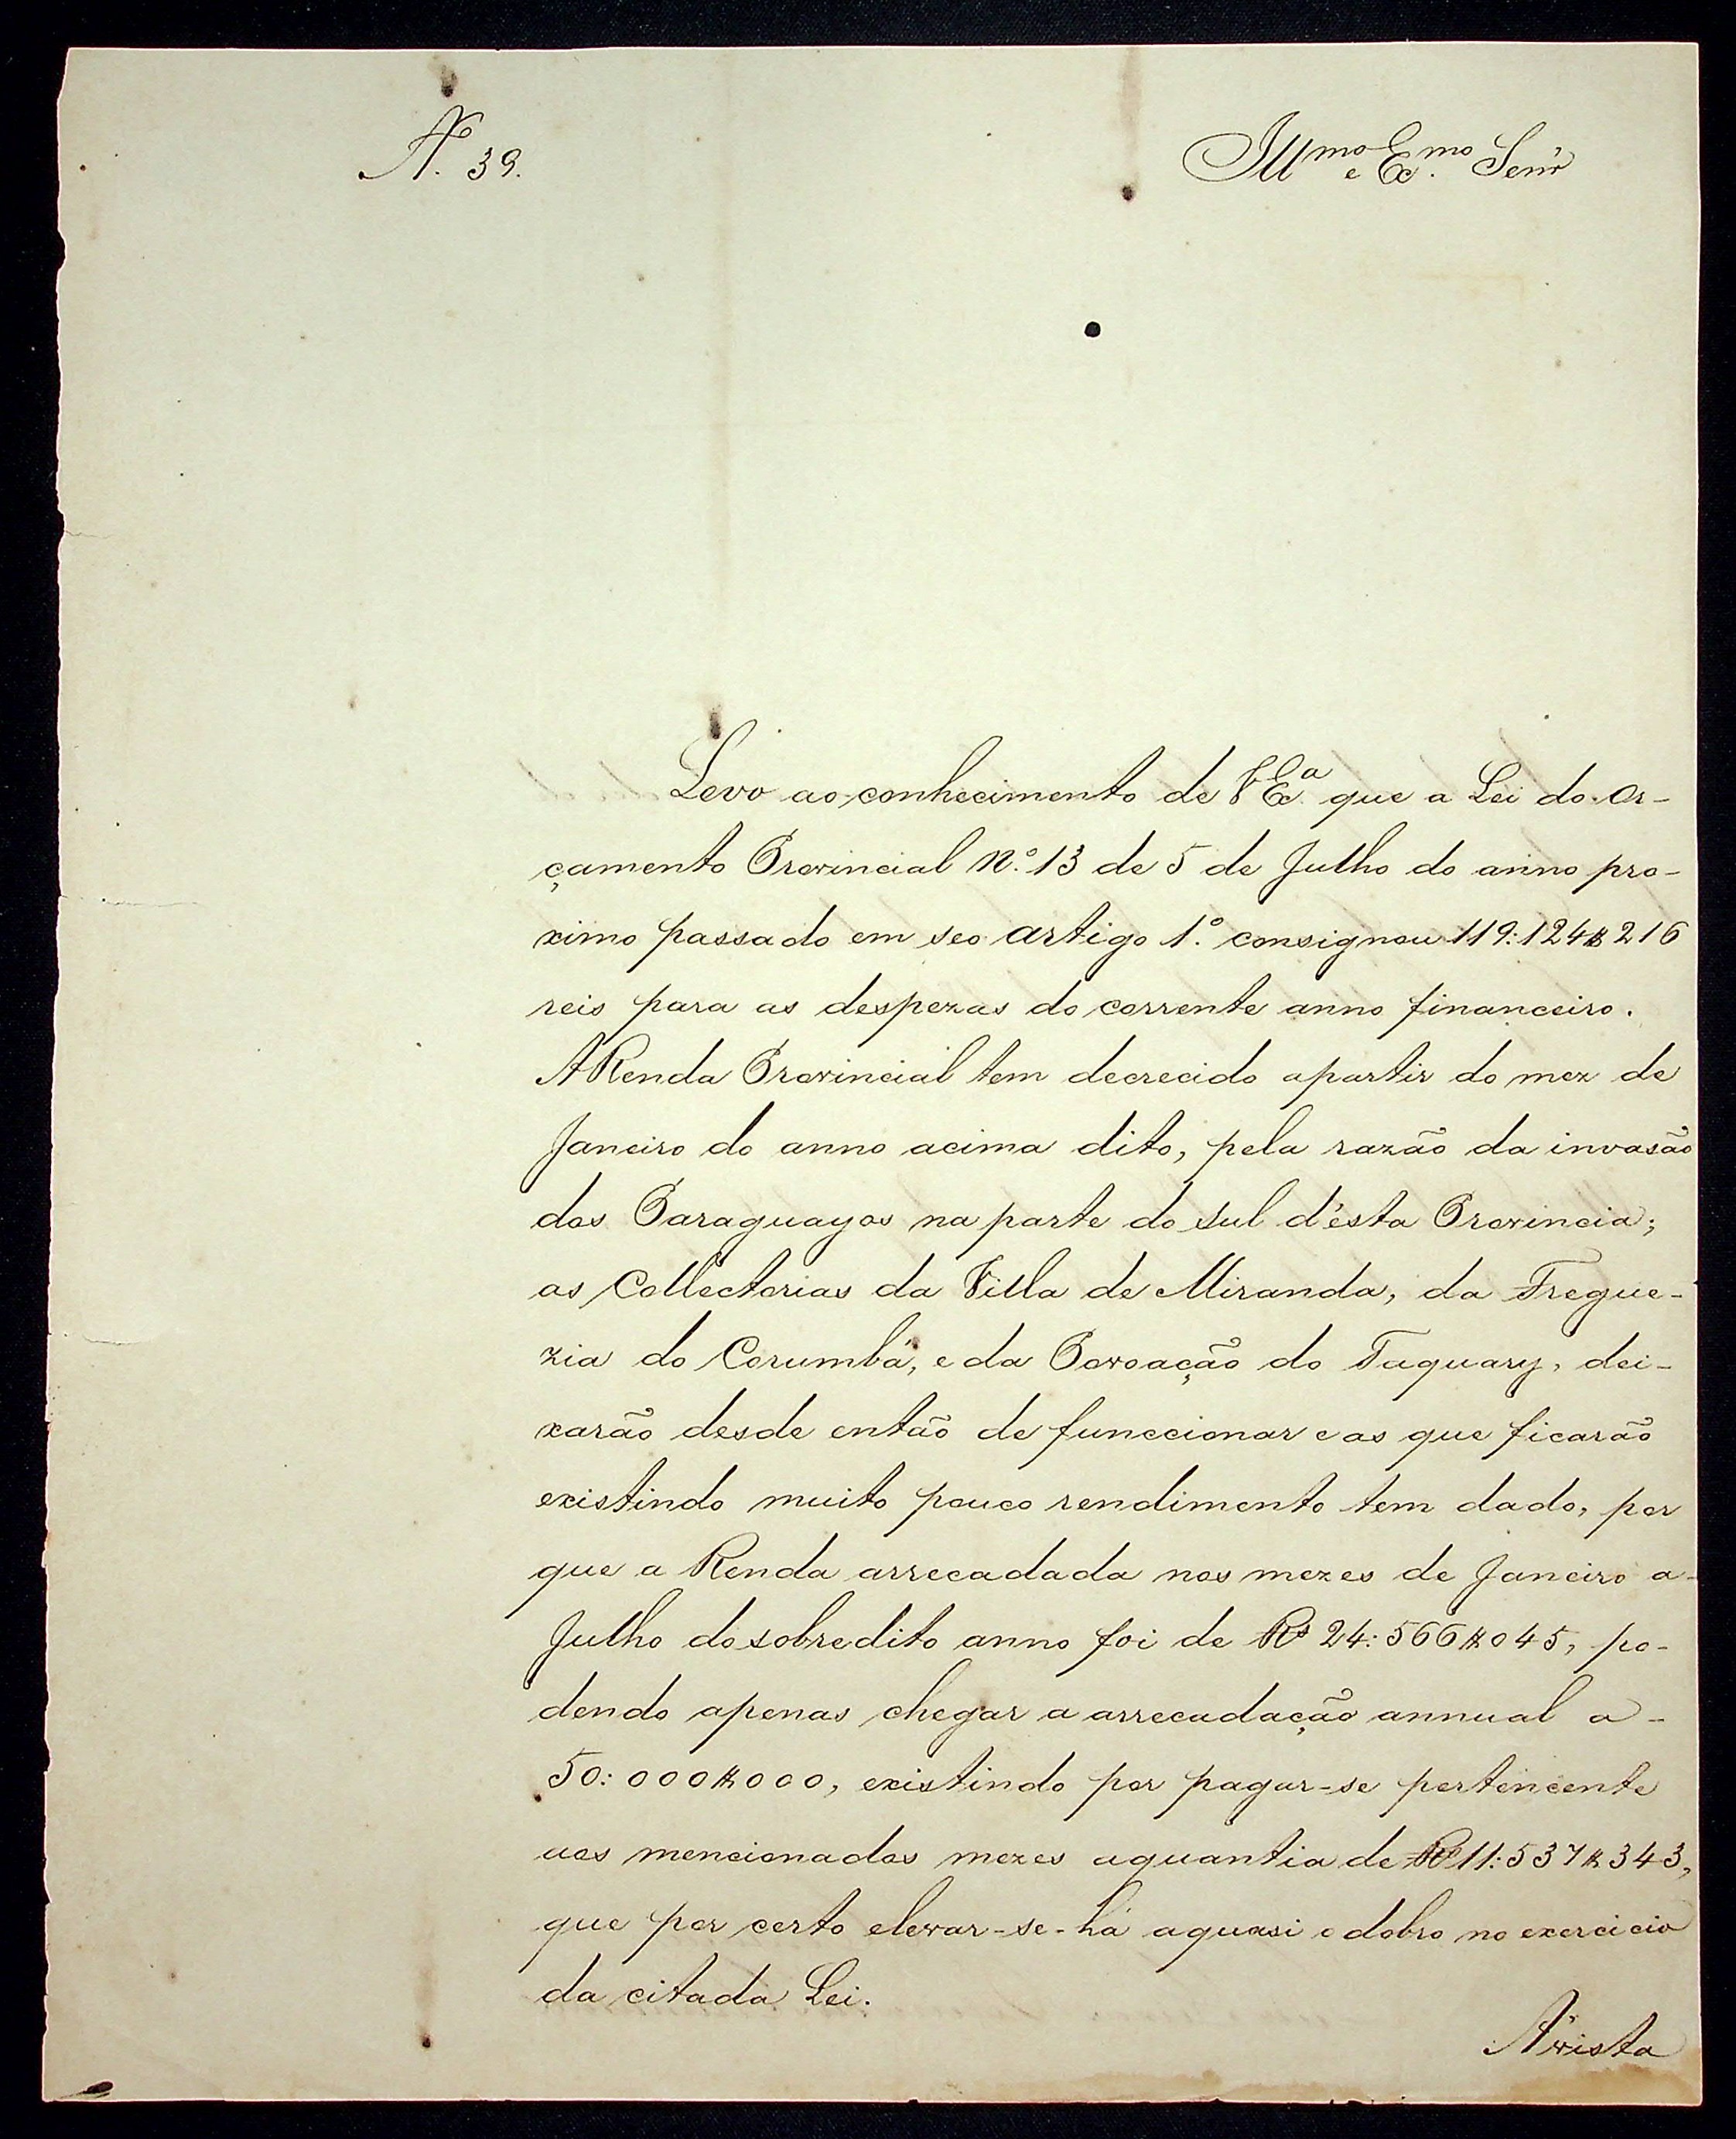 N. 39.
Illmo e Exmo Senr
Levo ao conhecimento de VExª que a Lei do Or-
çamento Provincial N.º 13 de 5 de Julho do anno pro-
ximo passado em seo artigo 1.º consignou 119:124$216
reis para as despezas do corrente anno financeiro.
A Renda Provincial tem decrecido apartir do mez de
Janeiro do anno acima dito, pela razão da invasão
dos Paraguayos na parte do Sul d'ésta Provincia;
as Collectorias da Villa de Miranda, da Fregue-
zia do Corumbá, e da Povoação do Taquary, dei-
xarão desde então de funccionar e as que ficarão
existindo muito pouco rendimento tem dado, por
que a Renda arrecadada nos mezes de Janeiro a-
Julho do sobredito anno foi de Rs 24:566$045, po-
dendo apenas chegar a arrecadação annual a-
50:000$000, existindo por pagar-se pertencente
aos mencionados mezes aquantia de Rs 11:537$343,
que por certo elevar-se-há aquasi o dobro no exercicio
da citada Lei.
Á vista